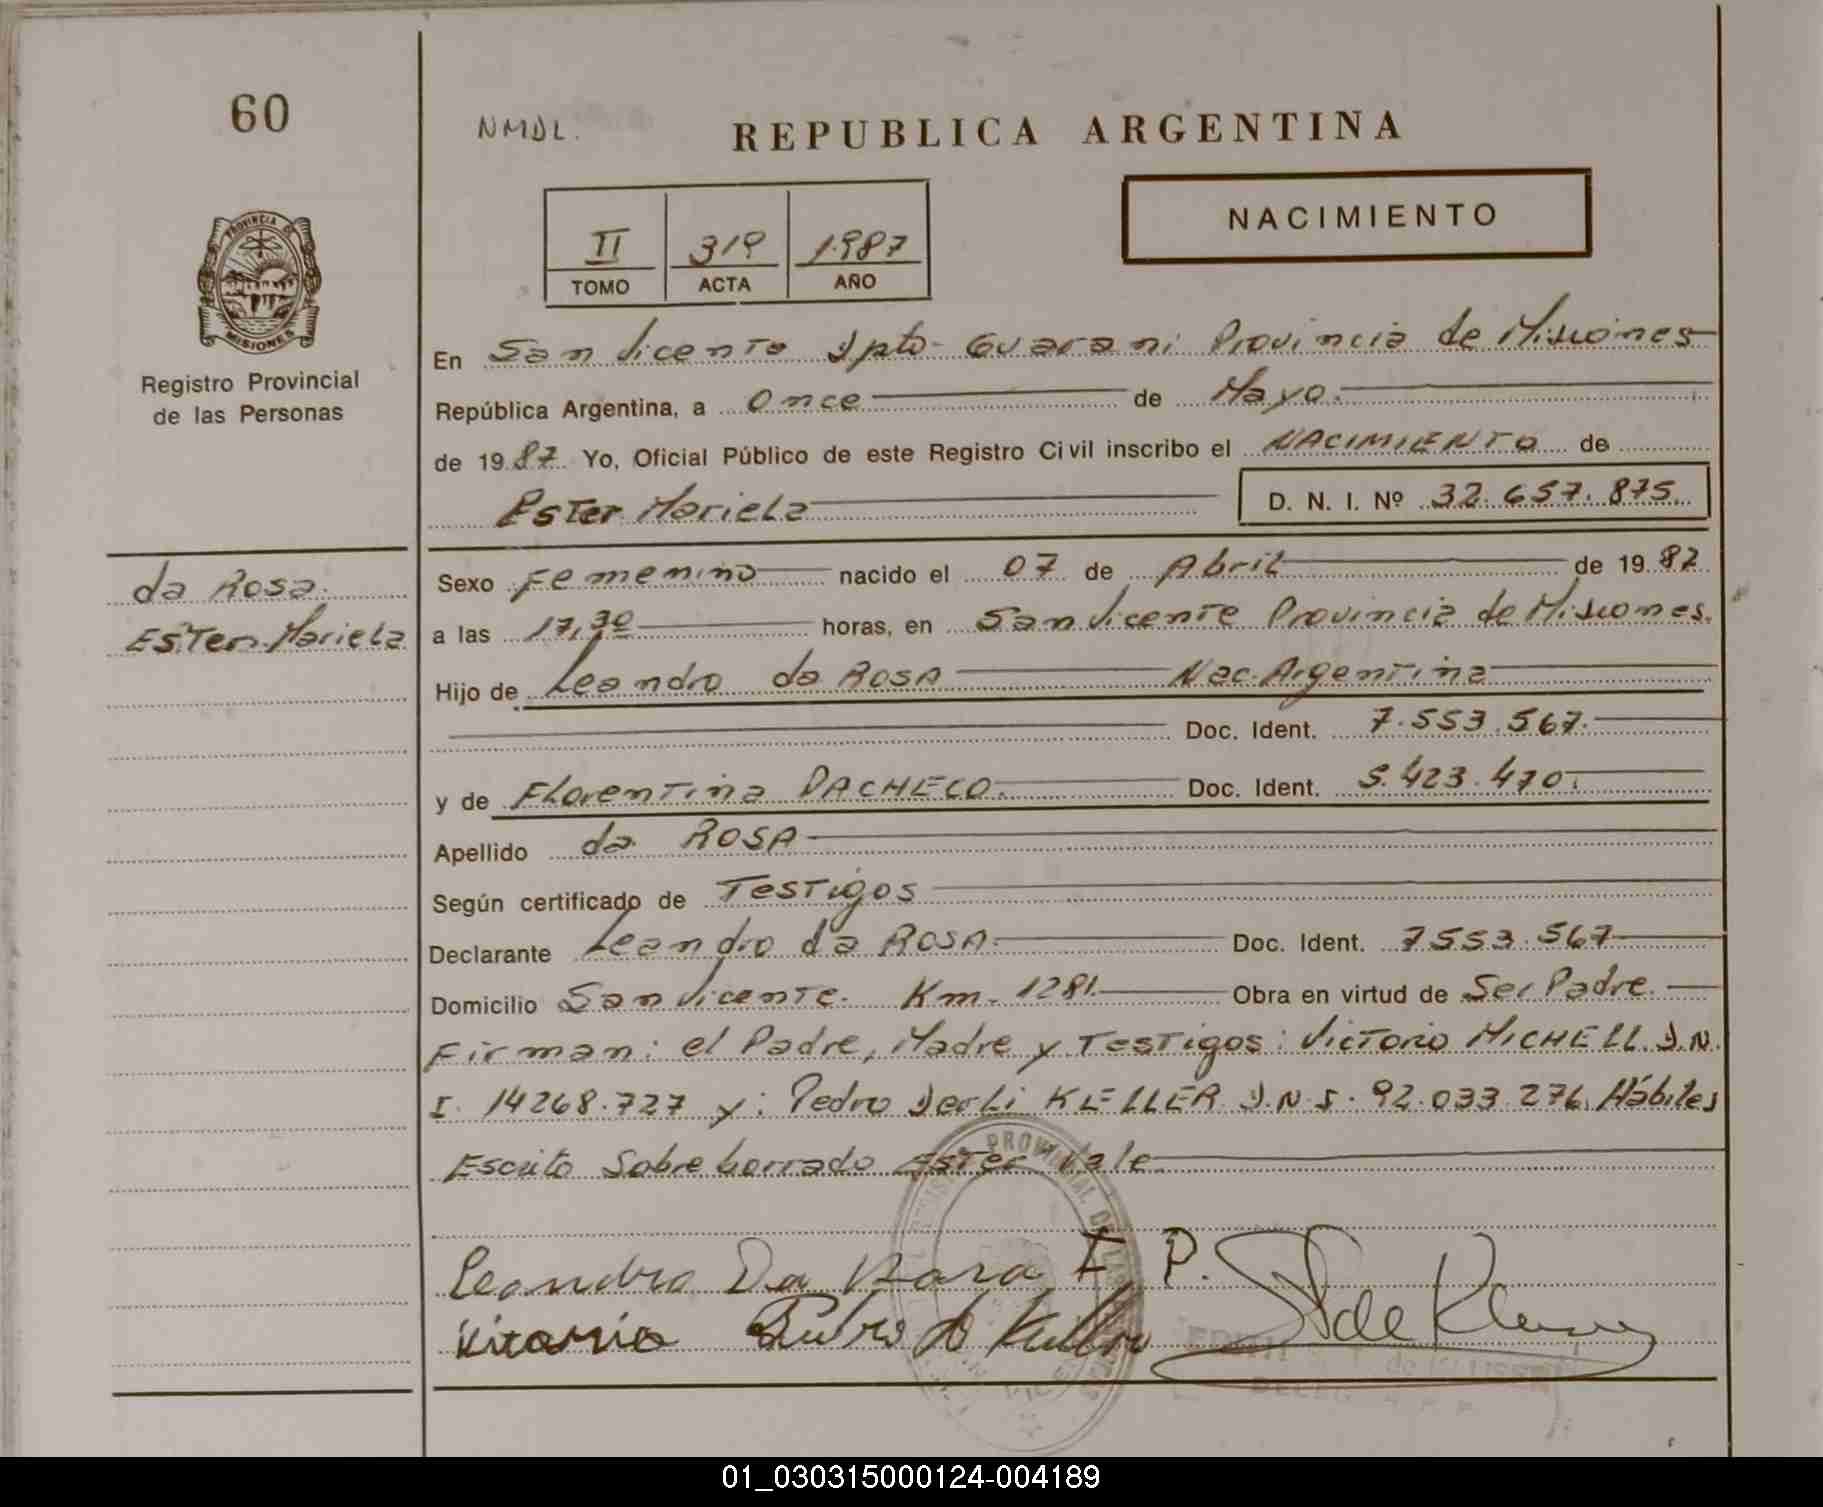 60
NMDL.
REPUBLICA ARGENTINA
PROVINCIA DE
MISIONES
Registro Provincial
de las Personas
II 319 1.987
TOMO ACTA AÑO
NACIMIENTO
En San Vicente Dpto- Guarani Provincia de Misiones
República Argentina, a Once de Mayo.
de 1987 Yo, Oficial Público de este Registro Civil inscribo el NACIMIENTO de
Ester Mariela D. N. I. Nº 32.657.875
da Rosa.
Ester Mariela
Sexo Femenino nacido el 07 de Abril de 1987
a las 17,30 horas, en San Vicente Provincia de Misiones.
Hijo de Leandro da ROSA Nac. Argentina
Doc. Ident. 7.553.567.
y de Florentina PACHECO. Doc. Ident. 5.423.470.
Apellido da ROSA
Según certificado de Testigos
Declarante Leandro da ROSA. Doc. Ident. 7553.567
Domicilio San Vicente. Km. 1281. Obra en virtud de Ser Padre.
Firman: el Padre, Madre y Testigos: Victorio MICHELL D.N.
I. 14268.727 y: Pedro Derli KELLER D.N.I. 92.033.276. Hábiles
Escrito Sobre borrado Ester Vale
Leandro Da Rosa F. P.
01_030315000124-004189